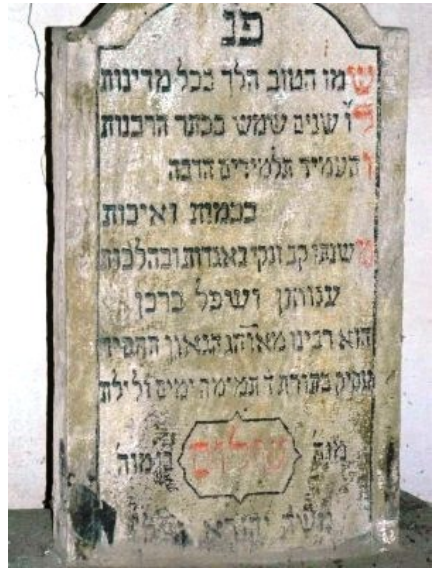 פנ
שמו הטוב הלך בכל מדינות
לו שנים שמש בכתר הרבנות
והעמיד תלמידים הרבה
בכמות ואיכות
משנתו קב ונקי באגדות ובהלכות
ענותן ושפל ברכן
הוא רבינו מאוהג הגאון החסיד
בתורת ד תמימה ימים ולילות
מוה שלום בן מוה
משה יהודא